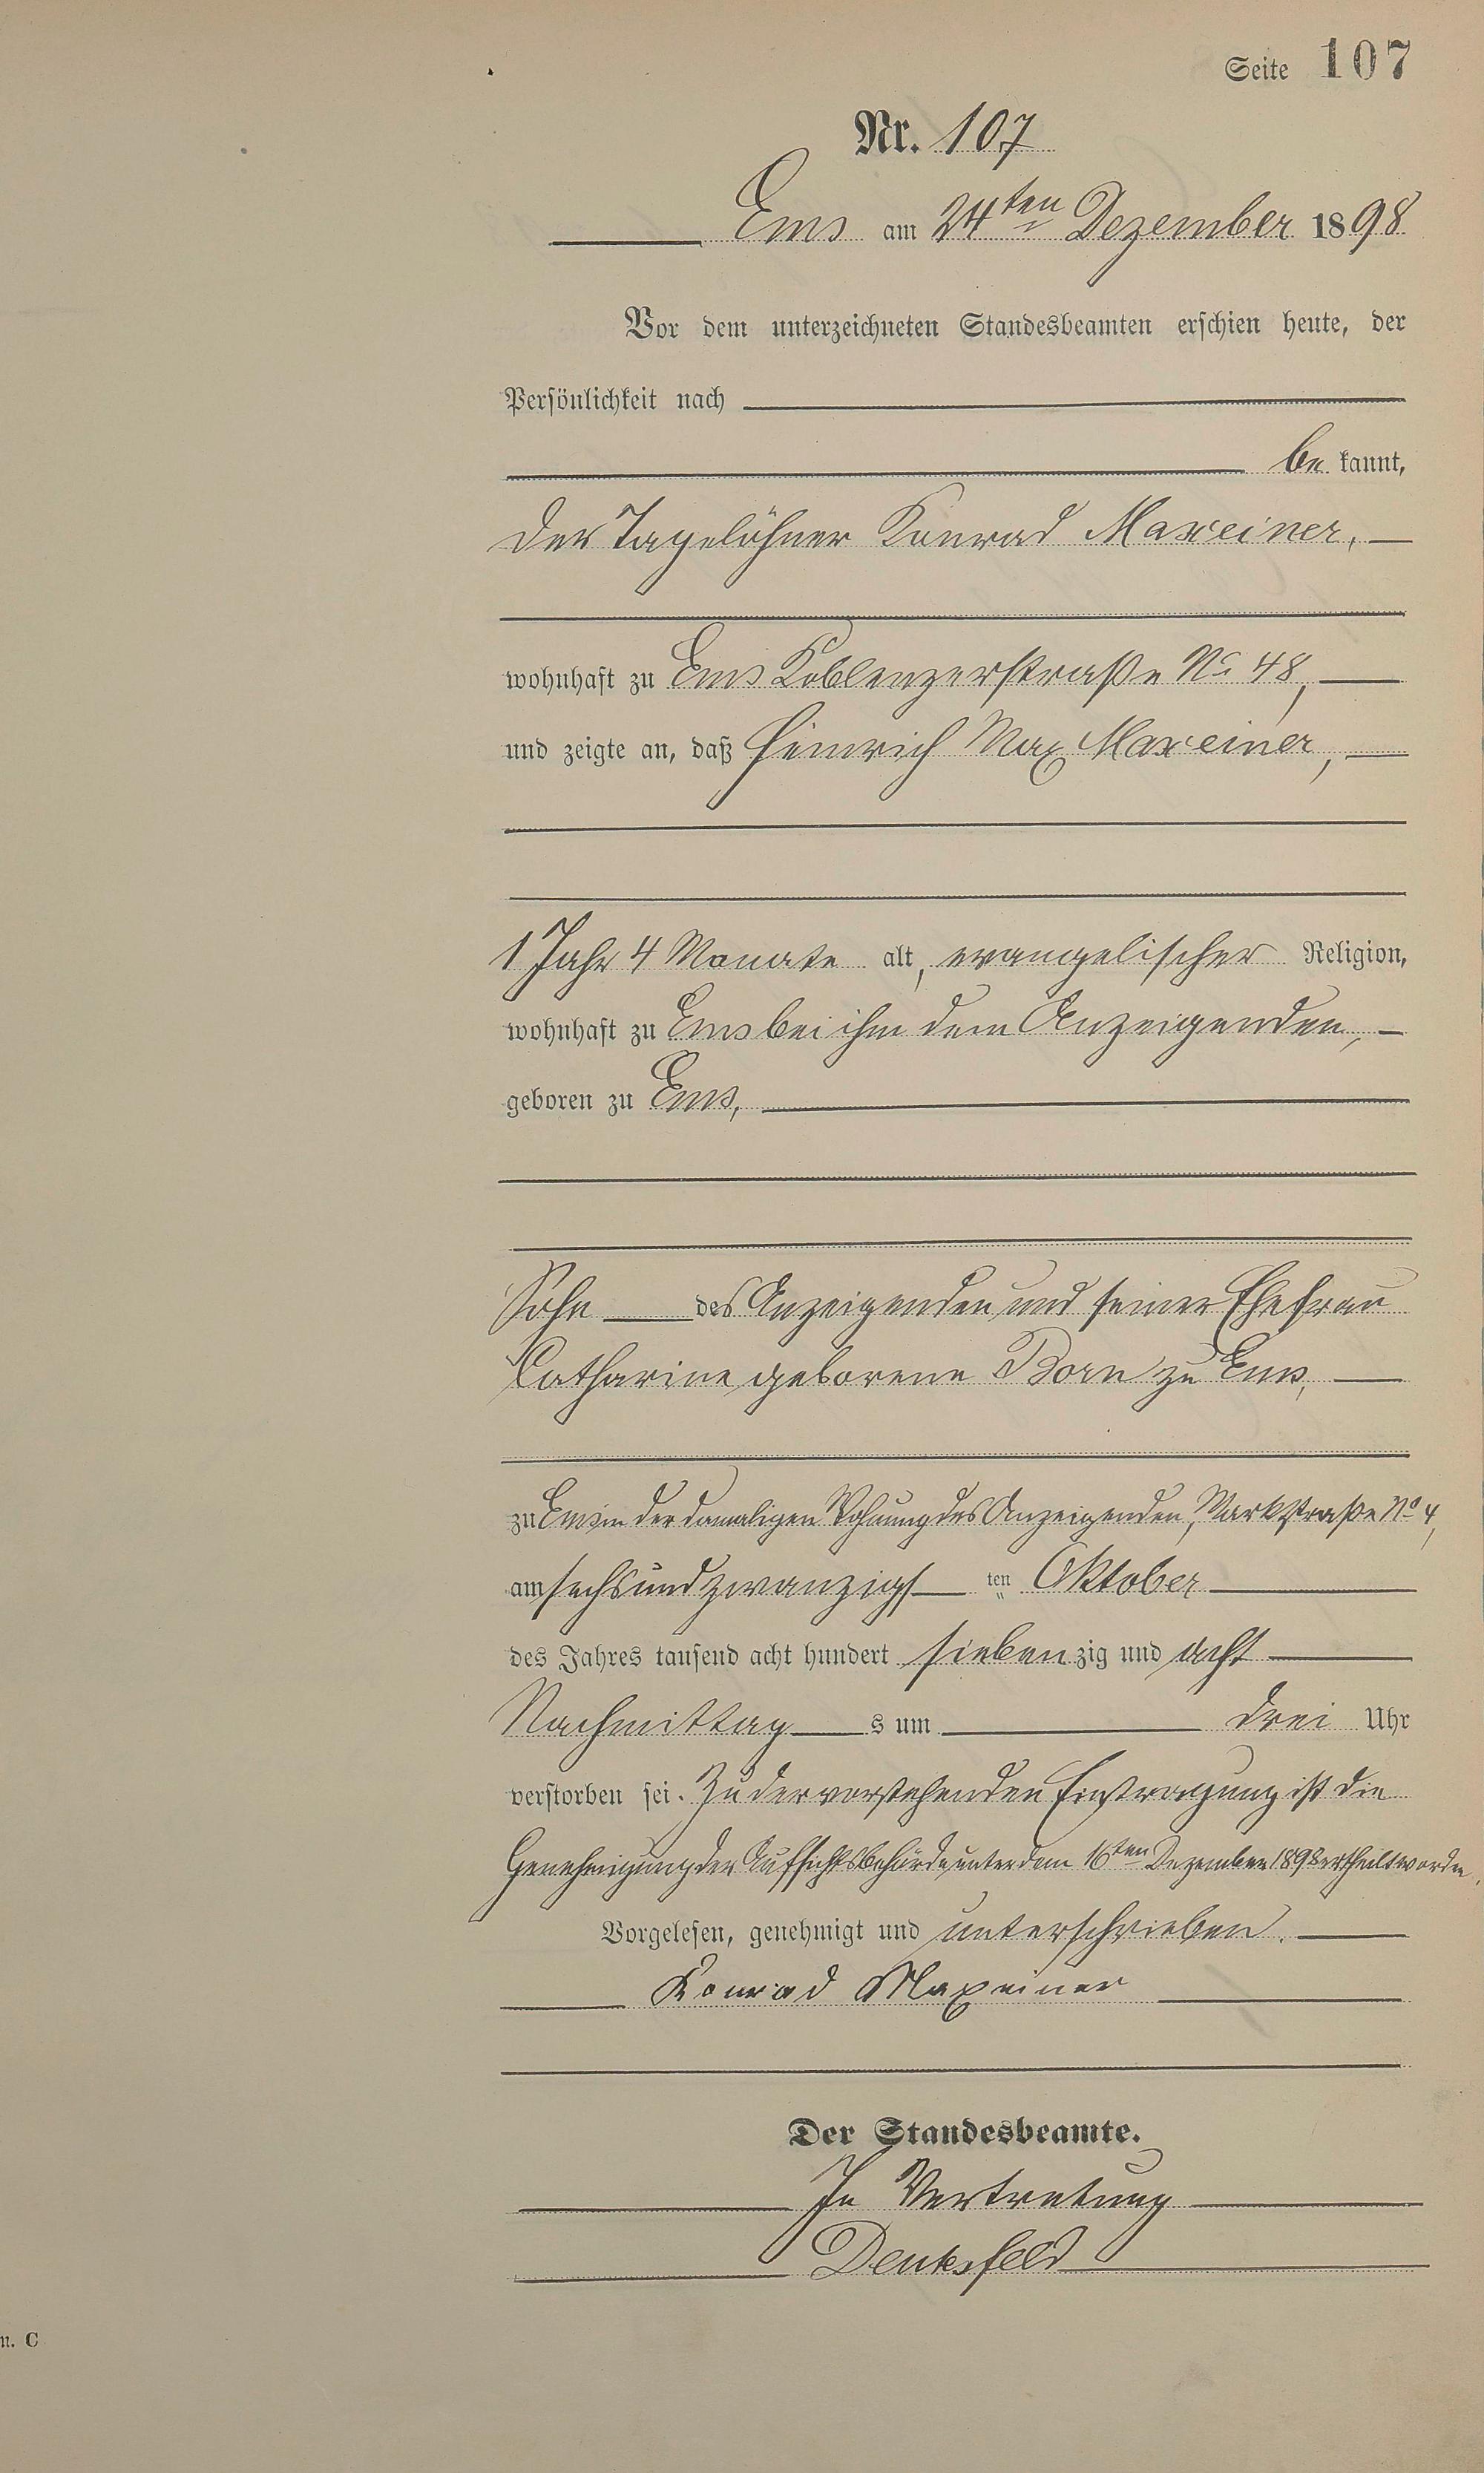 Seite 107
Nr. 107
Ems am 24ten Dezember 1898
Vor dem unterzeichneten Standesbeamten erschien heute, der
Persönlichkeit nach
be kannt,
der Tagelöhner Konrad Maxeiner,
wohnhaft zu Ems Koblenzerstraße No 48,
und zeigte an, daß Heinrich Max Maxeiner,
1 Jahr 4 Monate alt, evangelischer Religion,
wohnhaft zu Ems bei ihm dem Anzeigenden,
geboren zu Ems,
Sohn des Anzeigenden und seiner Ehefrau
Catharine geborene Born zu Ems,
zu Ems in der damaligen Wohnung des Anzeigenden, Markstraße No 4,
am sechsundzwanzigst ten Oktober
des Jahres tausend acht hundert sieben zig und acht
Nachmittag s um drei Uhr
verstorben sei. Zu der vorstehenden Eintragung ist die
Genehmigung der Aufsichtsbehörde unter dem 16ten Dezember 1898 ertheilt worden.
Vorgelesen, genehmigt und unterschrieben.
Konrad Maxeiner
Der Standesbeamte.
In Vertretung
n. C